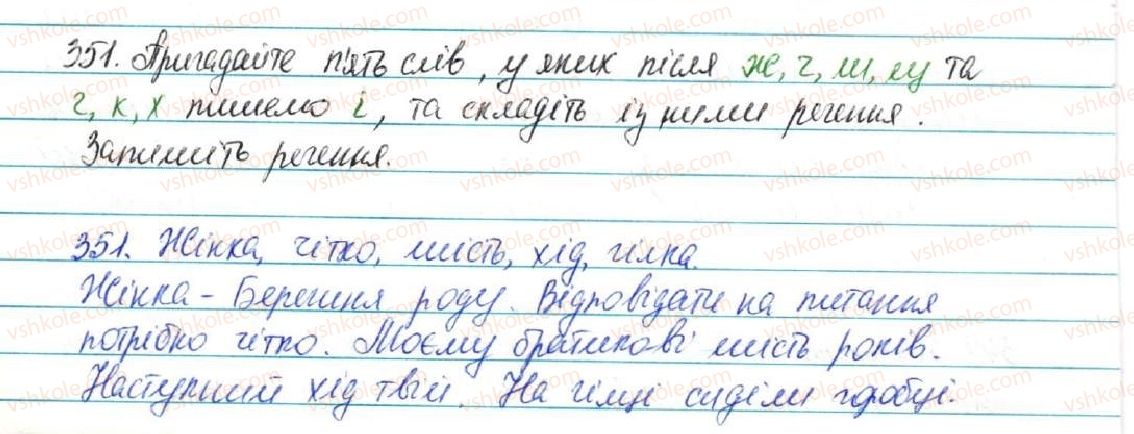 351. Пригадайте п'ять слів, у яких після ж, ч, ш, щ та
г, к, х пишемо і, та складіть із ними речення.
Запишіть речення.
351. Жінка, чітко, шість, хід, гілка.
Жінка - Берегиня роду. Відповідати на питання
потрібно чітко. Моєму братикові шість років.
Наступний хід твій. На гілці сиділи горобці.